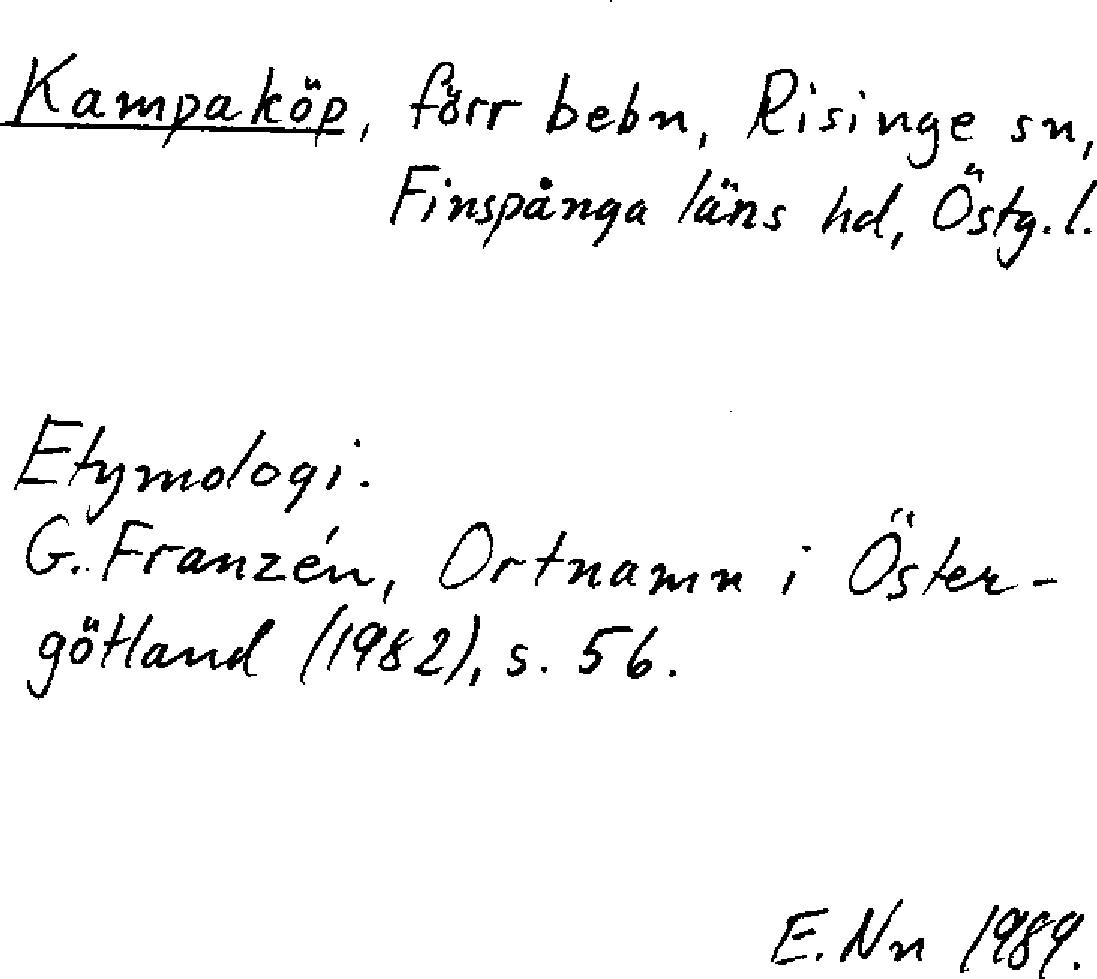 Kampaköp, förr bebn, Risinge sn,
Finspånga läns hd, Östg.l.
Etymologi.
G. Franzén, Ortnamn i Öster-
götland (1982), s. 56.
E. Nn 1989.